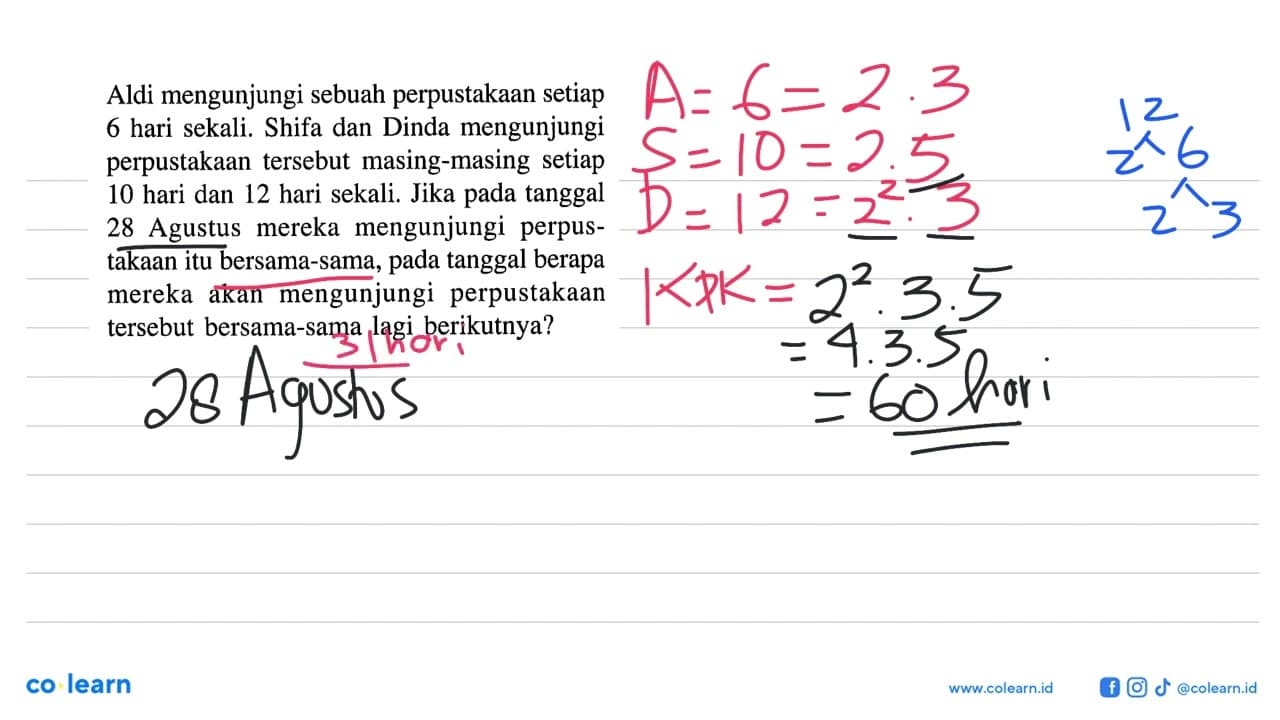 Aldi mengunjungi sebuah perpustakaan setiap
6 hari sekali. Shifa dan Dinda mengunjungi
perpustakaan tersebut masing-masing setiap
10 hari dan 12 hari sekali. Jika pada tanggal
28 Agustus mereka mengunjungi perpus-
takaan itu bersama-sama, pada tanggal berapa
mereka akan mengunjungi perpustakaan
tersebut bersama-sama lagi berikutnya?
31 hari
28 Agustus
A = 6 = 2 . 3
S = 10 = 2 . 5
D = 12 = 2² . 3
KPK = 2² . 3 . 5
= 4 . 3 . 5
= 60 hari
12
2 6
2 3
co learn
www.colearn.id
@colearn.id